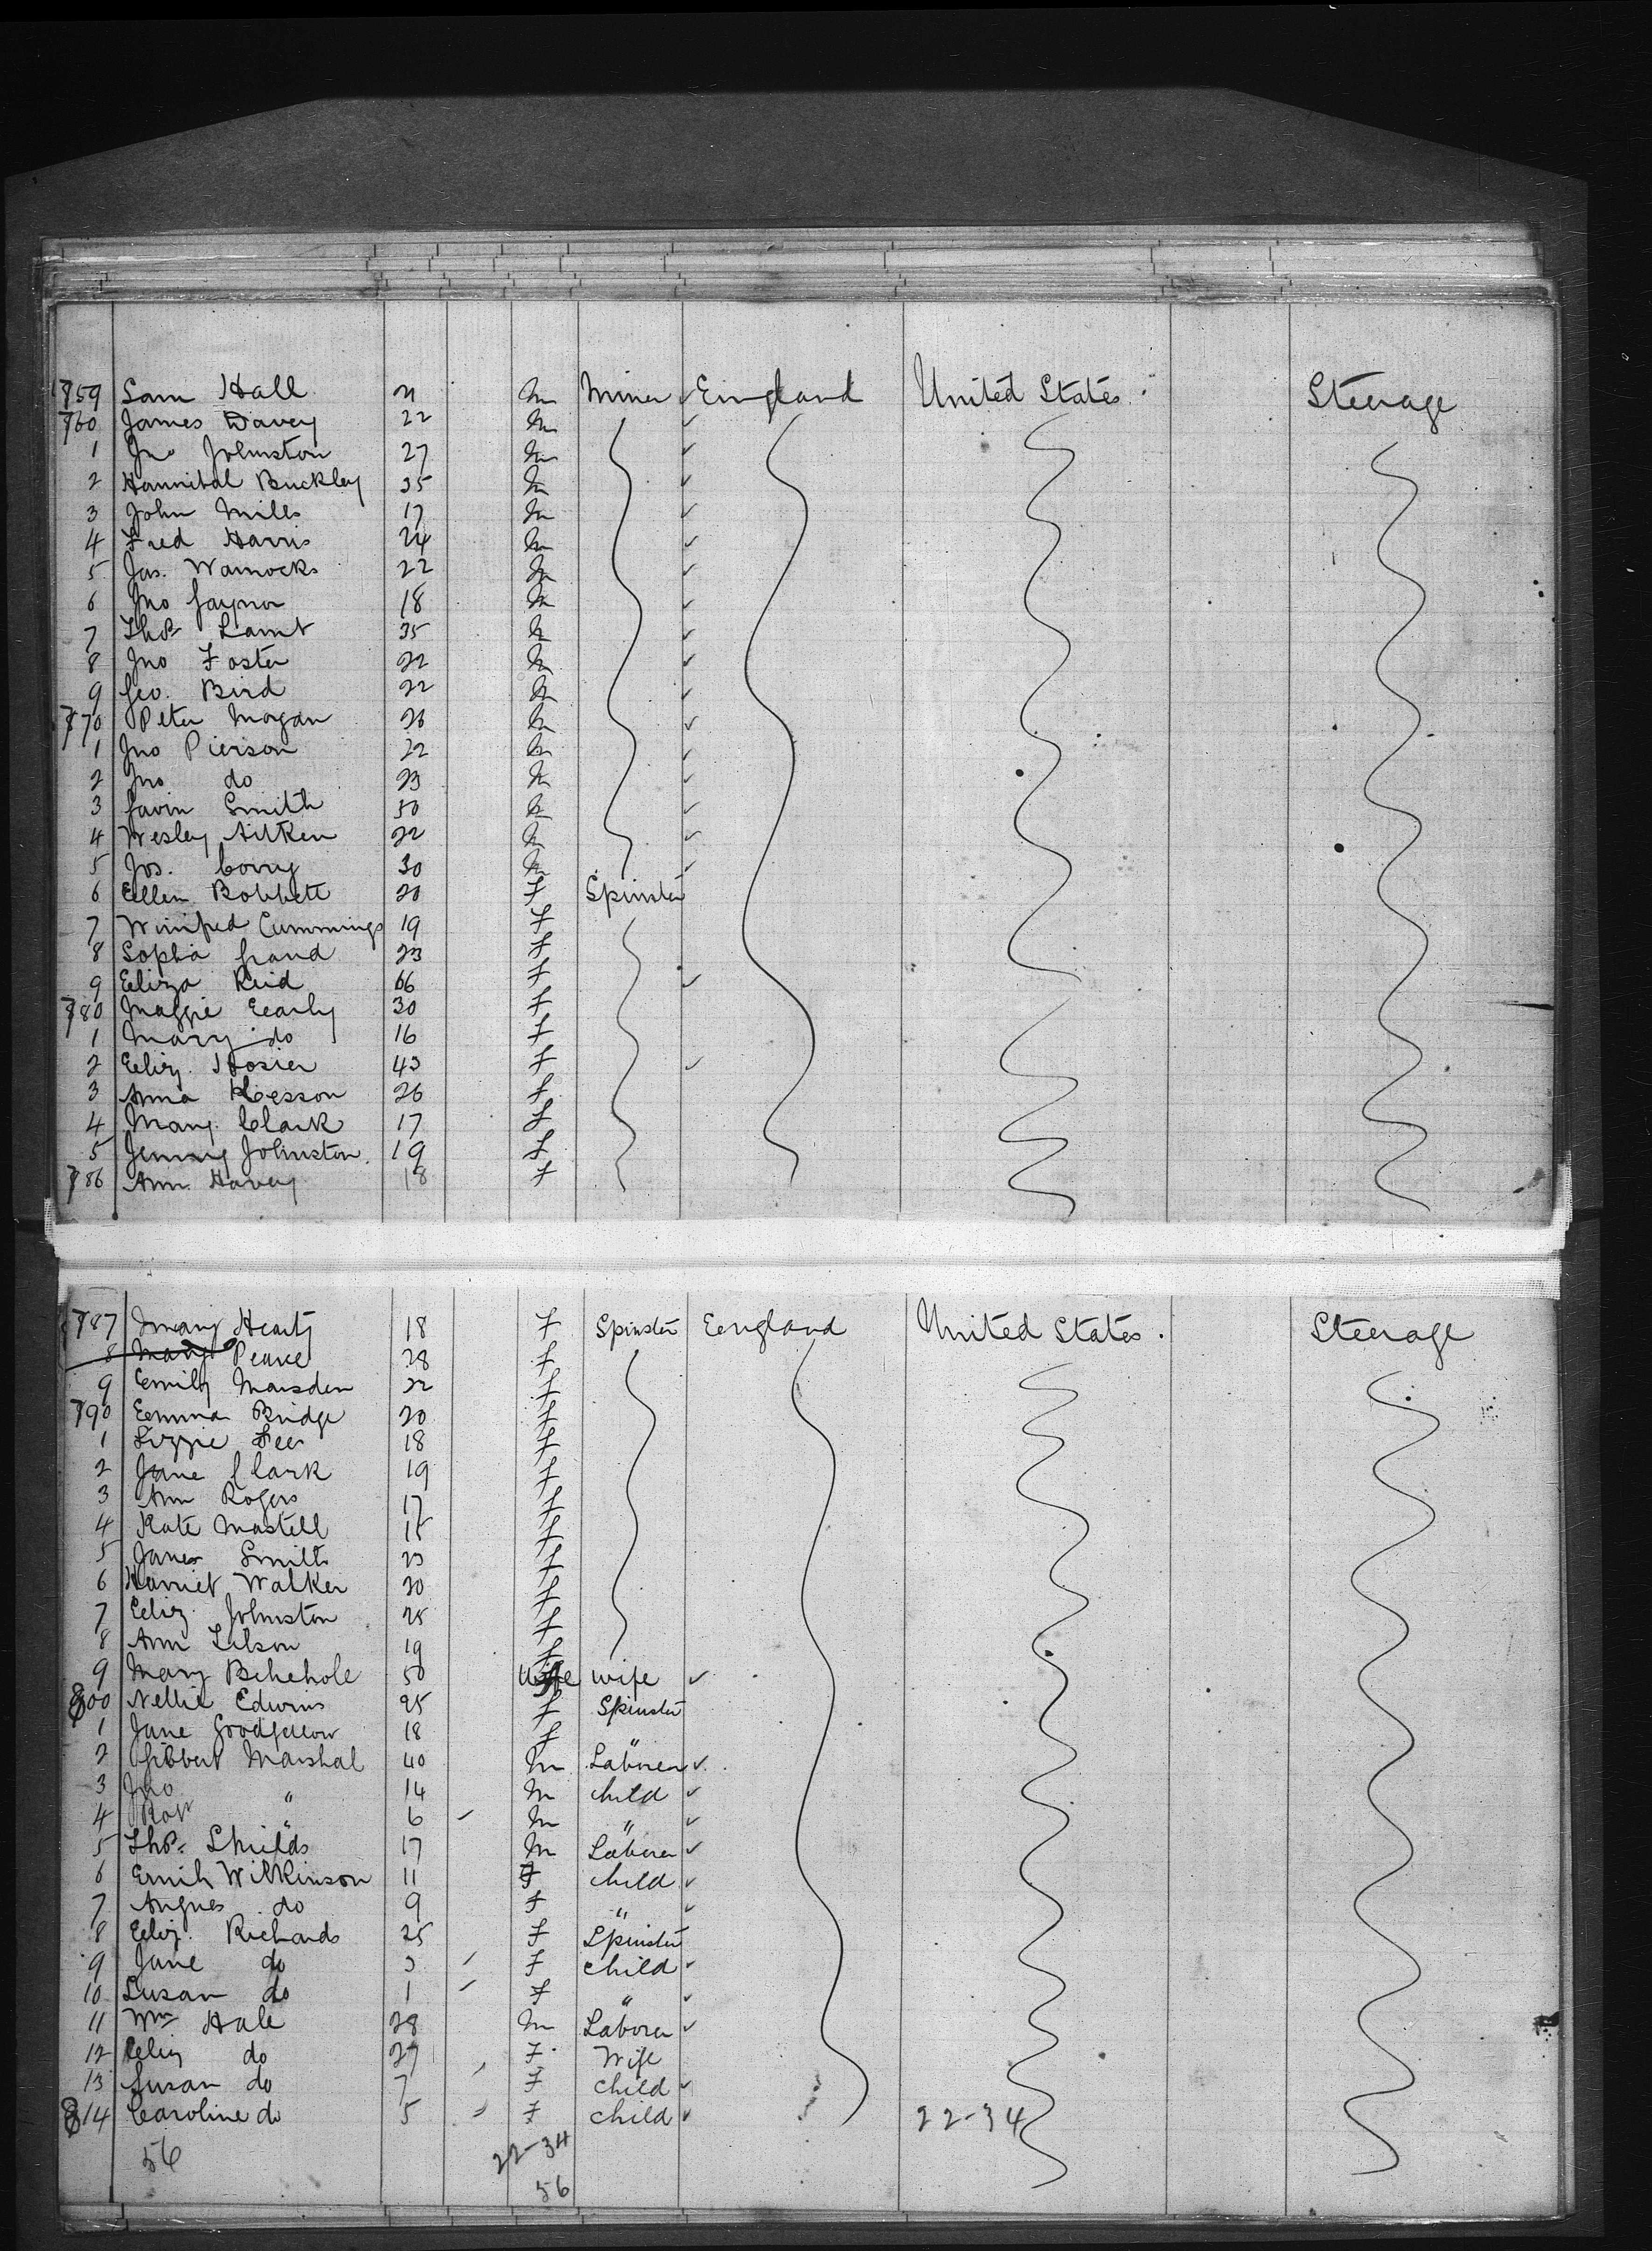 759 Sam Hall 21 M Miner England United States Steerage
760 James Davey 22 M
1 Jno Johnston 27 M
2 Hannibal Buckley 35 M
3 John Mills 17 M
4 Fred Harris 24 M
5 Jas. Warnocks 22 M
6 Jno Gaynor 18 M
7 Thos Lamb 35 M
8 Jno Foster 22 M
9 Geo. Bird 22 M
770 Peter Morgan 26 M
1 Jno Pierson 22 M
2 Jno do 23 M
3 Gavin Smith 50 M
4 Wesley Aitken 22 M
5 Jos. Corry 30 M
6 Ellen Bobbett 20 F Spinster
7 Winifred Cummings 19 F
8 Sophia Grand 23 F
9 Eliza Reid 66 F
780 Maggie Early 30 F
1 Mary do 16 F
2 Eliz. Hosier 43 F
3 Anna Hesson 26 F
4 Mary Clark 17 F
5 Jenny Johnston 19 F
786 Ann Havey 18 F
787 Mary Hearty 18 F Spinster England United States. Steerage
8 Mary Pearce 28 F
9 Emily Marsden 22 F
790 Emma Bridge 20 F
1 Lizzie Lees 18 F
2 Jane Clark 19 F
3 Ann Rogers 17 F
4 Kate Mastell 15 F
5 Jane Smith 23 F
6 Harriet Walker 20 F
7 Eliz. Johnston 25 F
8 Ann Lilson 19 F
9 Mary Behehole 50 F wife
800 Nellie Edwins 25 F Spinster
1 Jane Goodfellow 18 F "
2 Gibbert Marshal 40 M Laborer
3 Jno " 14 M child
4 Robt " 6 M "
5 Thos Shields 17 M Laborer
6 Emily Wilkinson 11 F child
7 Angnes do 9 F "
8 Eliz. Richards 25 F Spinster
9 Jane do 3 F child
10 Susan do 1 F "
11 Wm Hale 28 M Laborer
12 Eliz do 27 F Wife
13 Susan do 7 F child
814 Caroline do 5 F child 22-34
56 22-34
56